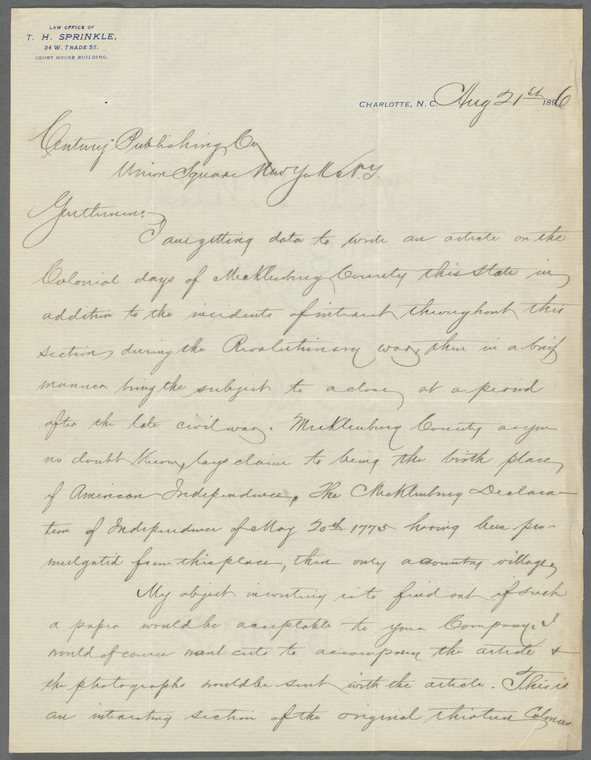 LAW OFFICE OF
T. H. SPRINKLE,
24 W. TRADE ST.
COURT HOUSE BUILDING.
CHARLOTTE, N.C. Aug 21st 1896
Century Publishing Co
Union Square New York N.Y.
Gentlemen:
I am getting data to write an article on the
Colonial days of Mecklenburg County this State in
addition to the incidents of interest throughout this
section during the Revolutionary war, then in a brief
manner bring the subject to a close at a period
after the late civil war. Mecklenburg County as you
no doubt know, lays claim to being the birth place
of American Independence, The Mecklenburg Declara-
tion of Independence of May 20th 1775 having been pro-
mulgated from this place, then only a country village
My object in writing is to find out if such
a paper would be acceptable to your Company. I
would of course want cuts to accompany the article &
the photographs would be sent with the article. This is
an interesting section of the original thirteen Colonies